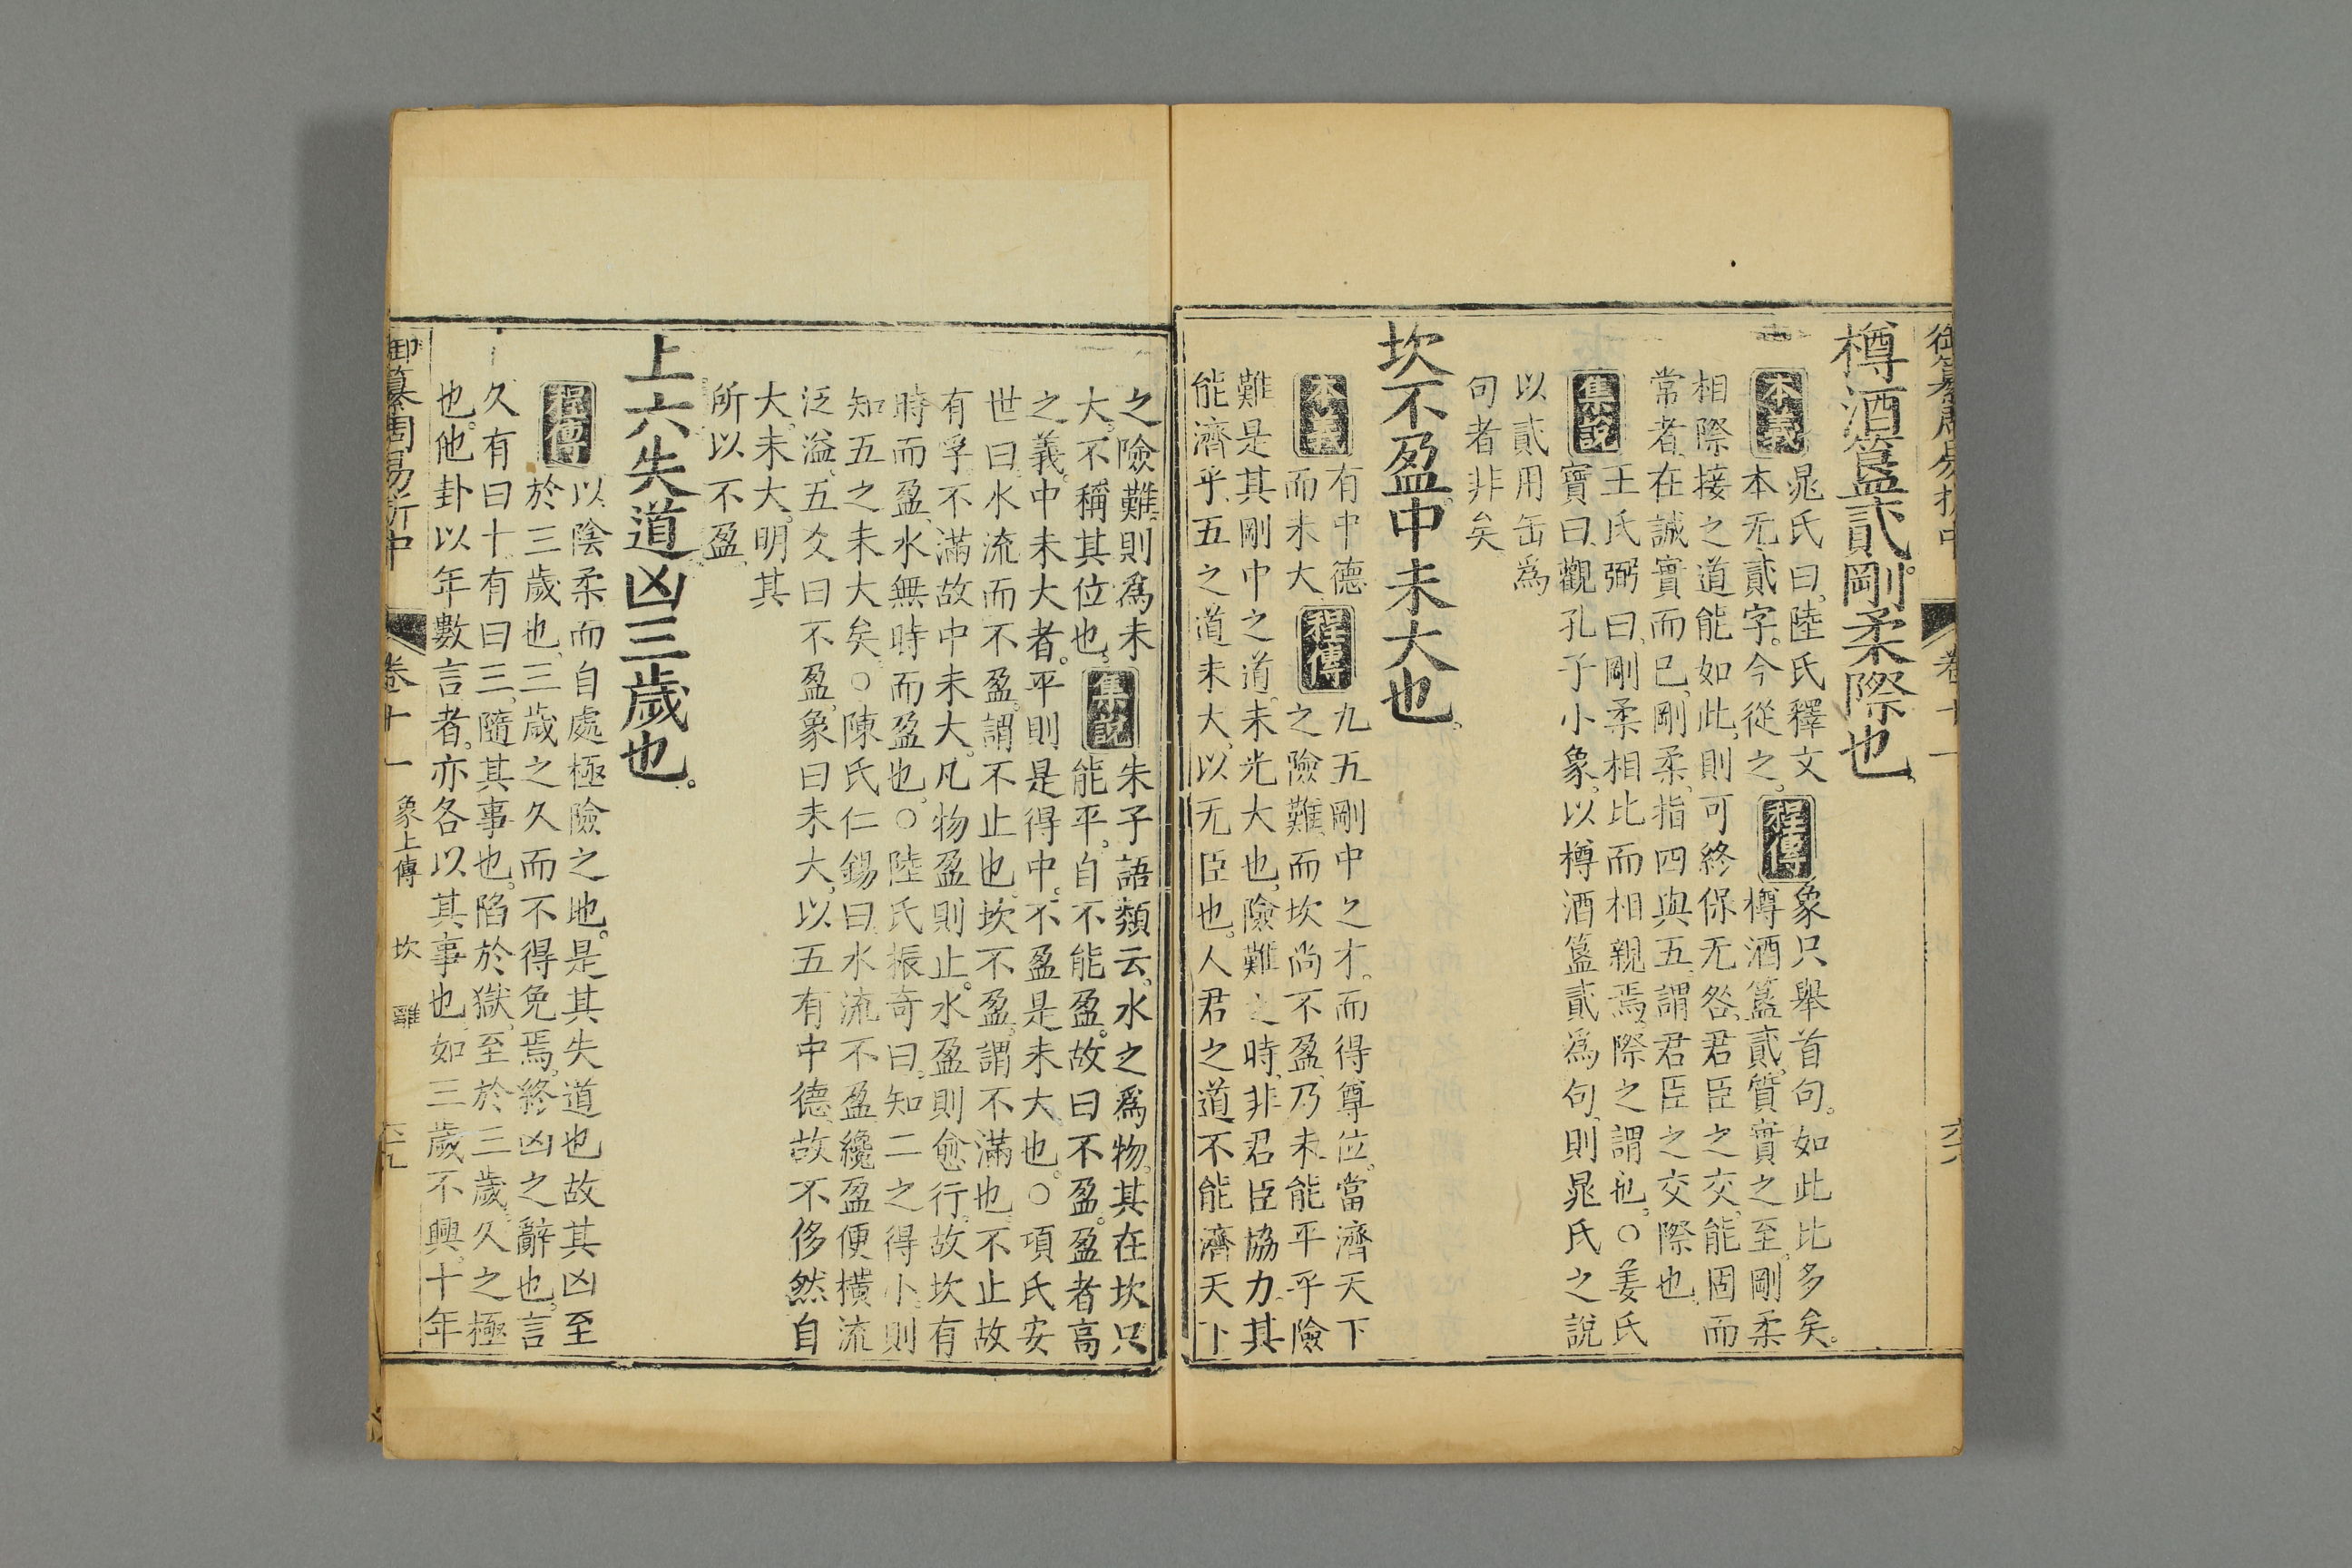 御纂周易折中 卷十一 六八
樽酒簋貳剛柔際也
本義
晁氏曰陸氏釋文
本无貳字今從之
程傳
象只舉首句如此比多矣
樽酒簋貳質實之至剛柔
相際接之道能如此則可終保无咎君臣之交能固而
常者在誠實而已剛柔指四與五謂君臣之交際也
集說
王氏弼曰剛柔相比而相親焉際之謂也○姜氏
寶曰觀孔子小象以樽酒簋貳爲句則晁氏之說
以貳用缶爲
句者非矣
坎不盈中未大也
本義
有中德
而未大
程傳
九五剛中之才而得尊位當濟天下
之險難而坎尚不盈乃未能平乎險
難是其剛中之道未光大也險難之時非君臣協力其
能濟乎五之道未大以无臣也人君之道不能濟天下
之險難則爲未
大不稱其位也
集說
朱子語類云水之爲物其在坎只
能平自不能盈故曰不盈盈者高
之義中未大者平則是得中不盈是未大也○項氏安
世曰水流而不盈謂不止也坎不盈謂不滿也不止故
有孚不滿故中未大凡物盈則止水盈則愈行故坎有
時而盈水無時而盈也○陸氏振奇曰知二之得小則
知五之未大矣○陳氏仁錫曰水流不盈纔盈便橫流
泛溢五爻曰不盈象曰未大以五有中德故不侈然自
大未大明其
所以不盈
上六失道凶三歲也
程傳
以陰柔而自處極險之地是其失道也故其凶至
於三歲也三歲之久而不得免焉終凶之辭也言
久有曰十有曰三隨其事也陷於獄至於三歲久之極
也他卦以年數言者亦各以其事也如三歲不興十年
御纂周易折中 卷十一 象上傳 坎 離 六九